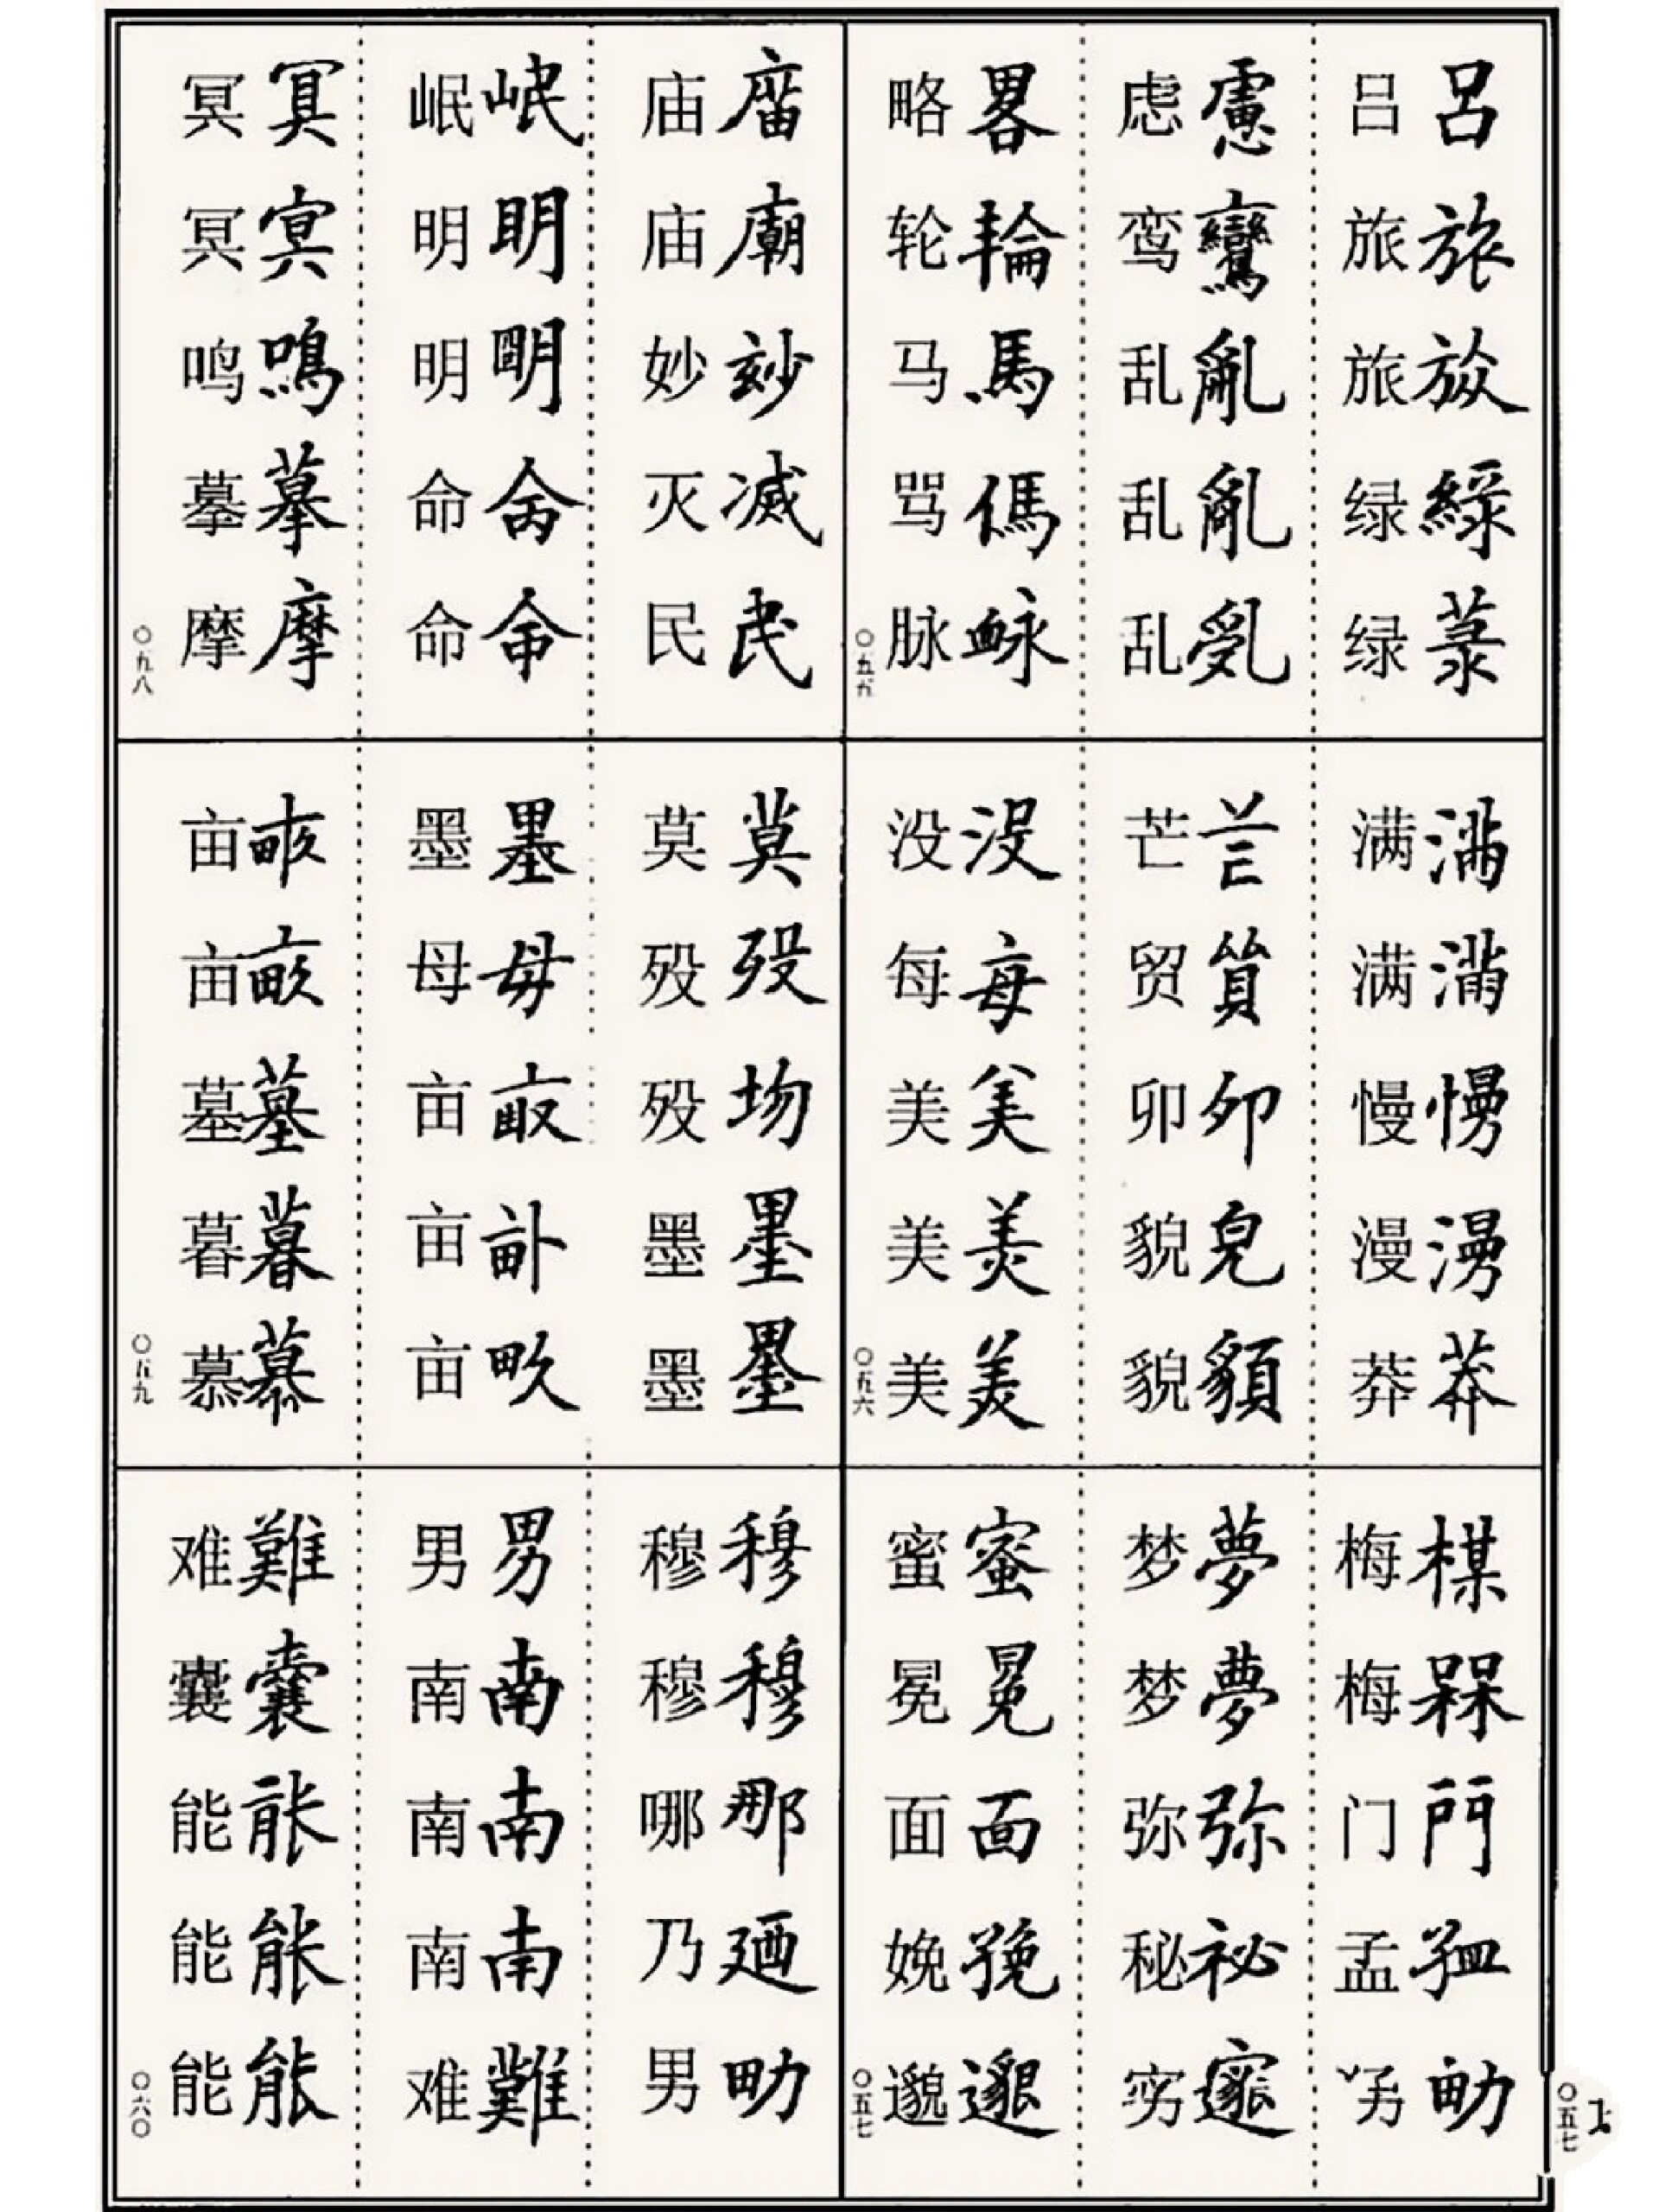 吕旅㫊緑菉
吕旅旅绿绿
慮鸞亂亂乱
虑鸾乱乱乱
畧輪馬傌䘑
略轮马骂脉
〇五五
滿滿慢漫莽
满满慢漫莽
芒貿夘皃貌
芒贸卯貌貌
没每美美美
没每美美美
〇五六
楳槑門孟
梅梅门孟
夢夢弥祕邃
梦梦弥秘窍
蜜冕面㝃邈
蜜冕面娩邈
〇五七
〇五七
庿廟玅滅民
庙庙妙灭民
岷明明命命
岷明明命命
冥冥鳴摹摩
冥冥鸣摹摩
〇九八
莫歿圽墨墨
莫殁殁墨墨
墨母畝畝畝
墨母亩亩亩
畝畝墓暮慕
亩亩墓暮慕
〇五九
穆穆那廼男
穆穆哪乃男
男南南南難
男南南南难
難囊能能能
难囊能能能
〇六〇